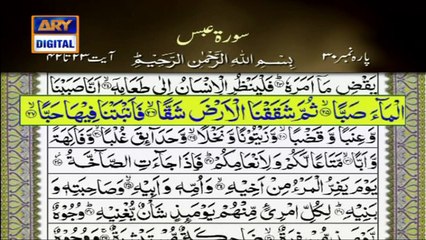 ARY
DIGITAL
سورة عبس
پارہ نمبر ۳۰
بِسْمِ اللهِ الرَّحْمٰنِ الرَّحِيْمِ
آیت ۲۳ تا ۴۲
يَقْضِ مَآ اَمَرَهٗ ؕ فَلْيَنْظُرِ الْاِنْسَانُ اِلٰى طَعَامِهٖۤ اَنَّا صَبَبْنَا
الْمَآءَ صَبًّا ۙ﴿۲۵﴾ ثُمَّ شَقَقْنَا الْاَرْضَ شَقًّا ۙ﴿۲۶﴾ فَاَنْۢبَتْنَا فِيْهَا حَبًّا ۙ﴿۲۷﴾
وَّعِنَبًا وَّقَضْبًا ۙ﴿۲۸﴾ وَّزَيْتُوْنًا وَّنَخْلًا ۙ﴿۲۹﴾ وَّحَدَآئِقَ غُلْبًا ۙ﴿۳۰﴾ وَّفَاكِهَةً
وَّاَبًّا ۙ﴿۳۱﴾ مَّتَاعًا لَّكُمْ وَلِاَنْعَامِكُمْ ؕ﴿۳۲﴾ فَاِذَا جَآءَتِ الصَّآخَّةُ ۫﴿۳۳﴾
يَوْمَ يَفِرُّ الْمَرْءُ مِنْ اَخِيْهِ ۙ﴿۳۴﴾ وَاُمِّهٖ وَاَبِيْهِ ۙ﴿۳۵﴾ وَصَاحِبَتِهٖ وَ
بَنِيْهِ ؕ﴿۳۶﴾ لِكُلِّ امْرِئٍ مِّنْهُمْ يَوْمَئِذٍ شَاْنٌ يُّغْنِيْهِ ؕ﴿۳۷﴾ وُجُوْهٌ